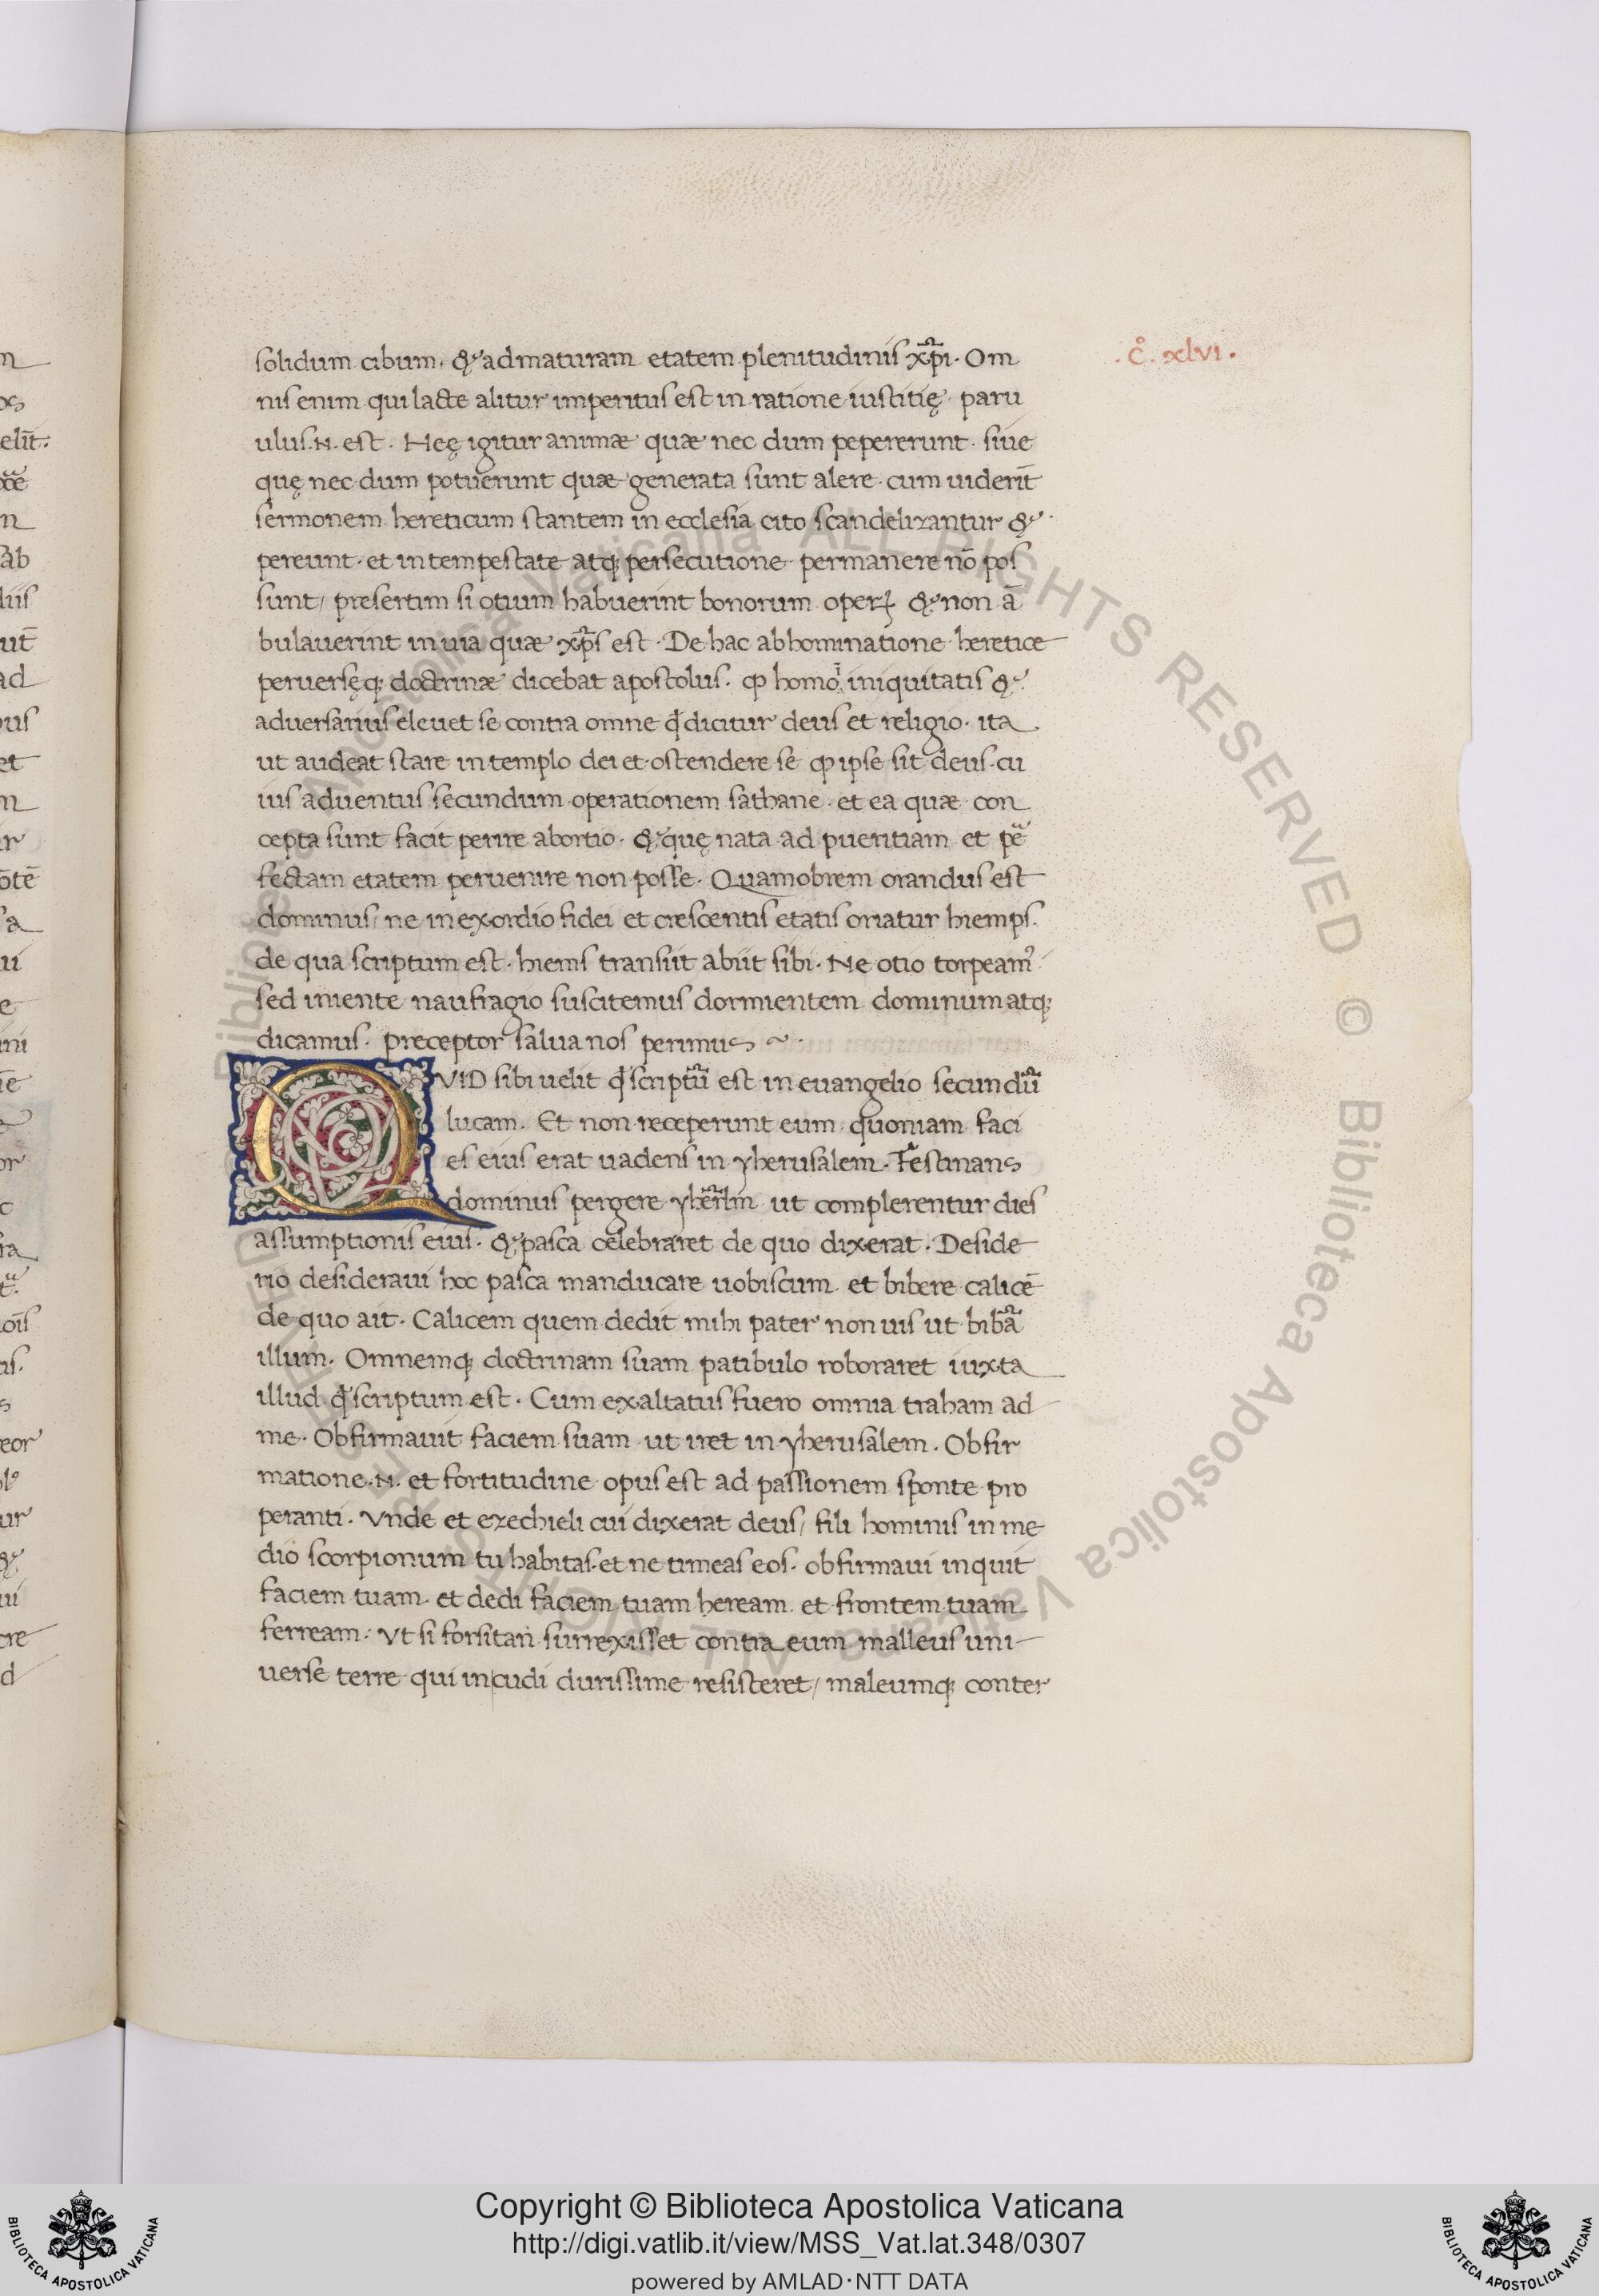 solidum cibum. & ad maturam etatem plenitudinis xp̄i. Om
nis enim qui lacte alitur imperitus est in ratione iustitię paru
ulus .N. est. Heę igitur animæ quæ nec dum pepererunt. siue
quę nec dum potuerunt quæ generata sunt alere. cum uiderīt
sermonem hereticum stantem in ecclesia cito scandelizantur &
pereunt. et in tempestate atq; persecutione permanere nō pos
sunt/ presertim si otium habuerint bonorum operꝝ & non ā
bulauerint in uia quæ xp̄s est. De hac abhominatione heretice
peruersęq; doctrinæ dicebat apostolus. ꝙ homo iniquitatis &
aduersarius eleuet se contra omne qđ dicitur deus et religio. ita
ut audeat stare in templo dei et ostendere se ꝙ ipse sit deus. cu
ius aduentus secundum operationem sathane. et ea quæ con
cepta sunt facit perire abortio. & quę nata ad pueritiam et pē
fectam etatem peruenire non posse. Quamobrem orandus est
dominus/ ne in exordio fidei et crescentis etatis oriatur hiemps.
de qua scriptum est. hiems transiit abiit sibi. Ne otio torpeamꝰ
sed iniente naufragio suscitemus dormientem dominum atq;
dicamus. preceptor salua nos perimus ~
QVID sibi uelit qđ scriptū est in euangelio secundū
lucam. Et non receperunt eum quoniam faci
es eius erat uadens in yherusalem. Festinans
dominus pergere yherl̄m ut complerentur dies
assumptionis eius. & pasca celebraret de quo dixerat. Deside
rio desideraui hoc pasca manducare uobiscum et bibere calicē
de quo ait. Calicem quem dedit mihi pater non uis ut bibā
illum. Omnemq; doctrinam suam patibulo roboraret iuxta
illud qđ scriptum est. Cum exaltatus fuero omnia traham ad
me. Obfirmauit faciem suam ut iret in yherusalem. Obfir
matione .N. et fortitudine opus est ad passionem sponte pro
peranti. Vnde et ezechieli cui dixerat deus/ fili hominis in me
dio scorpionum tu habitas. et ne timeas eos. obfirmaui inquit
faciem tuam. et dedi faciem tuam heream et frontem tuam
ferream. Vt si forsitan surrexisset contra eum malleus uni
uerse terre qui incudi durissime resisteret/ maleumq; conter
.c̊. xlvi.
n
elīt:
n
ab
liis
ut̄
ad
et
n
ūr
ōtē
a
ui
e
ini
or
c
ra
ōis
is.
s
eor
ur
&
ui
cre
d
Biblioteca Apostolica Vaticana ALL RIGHTS RESERVED © Biblioteca Apostolica Vaticana ALL RIGHTS RESERVED ©
Copyright © Biblioteca Apostolica Vaticana
http://digi.vatlib.it/view/MSS_Vat.lat.348/0307
powered by AMLAD·NTT DATA
BIBLIOTECA APOSTOLICA VATICANA
BIBLIOTECA APOSTOLICA VATICANA